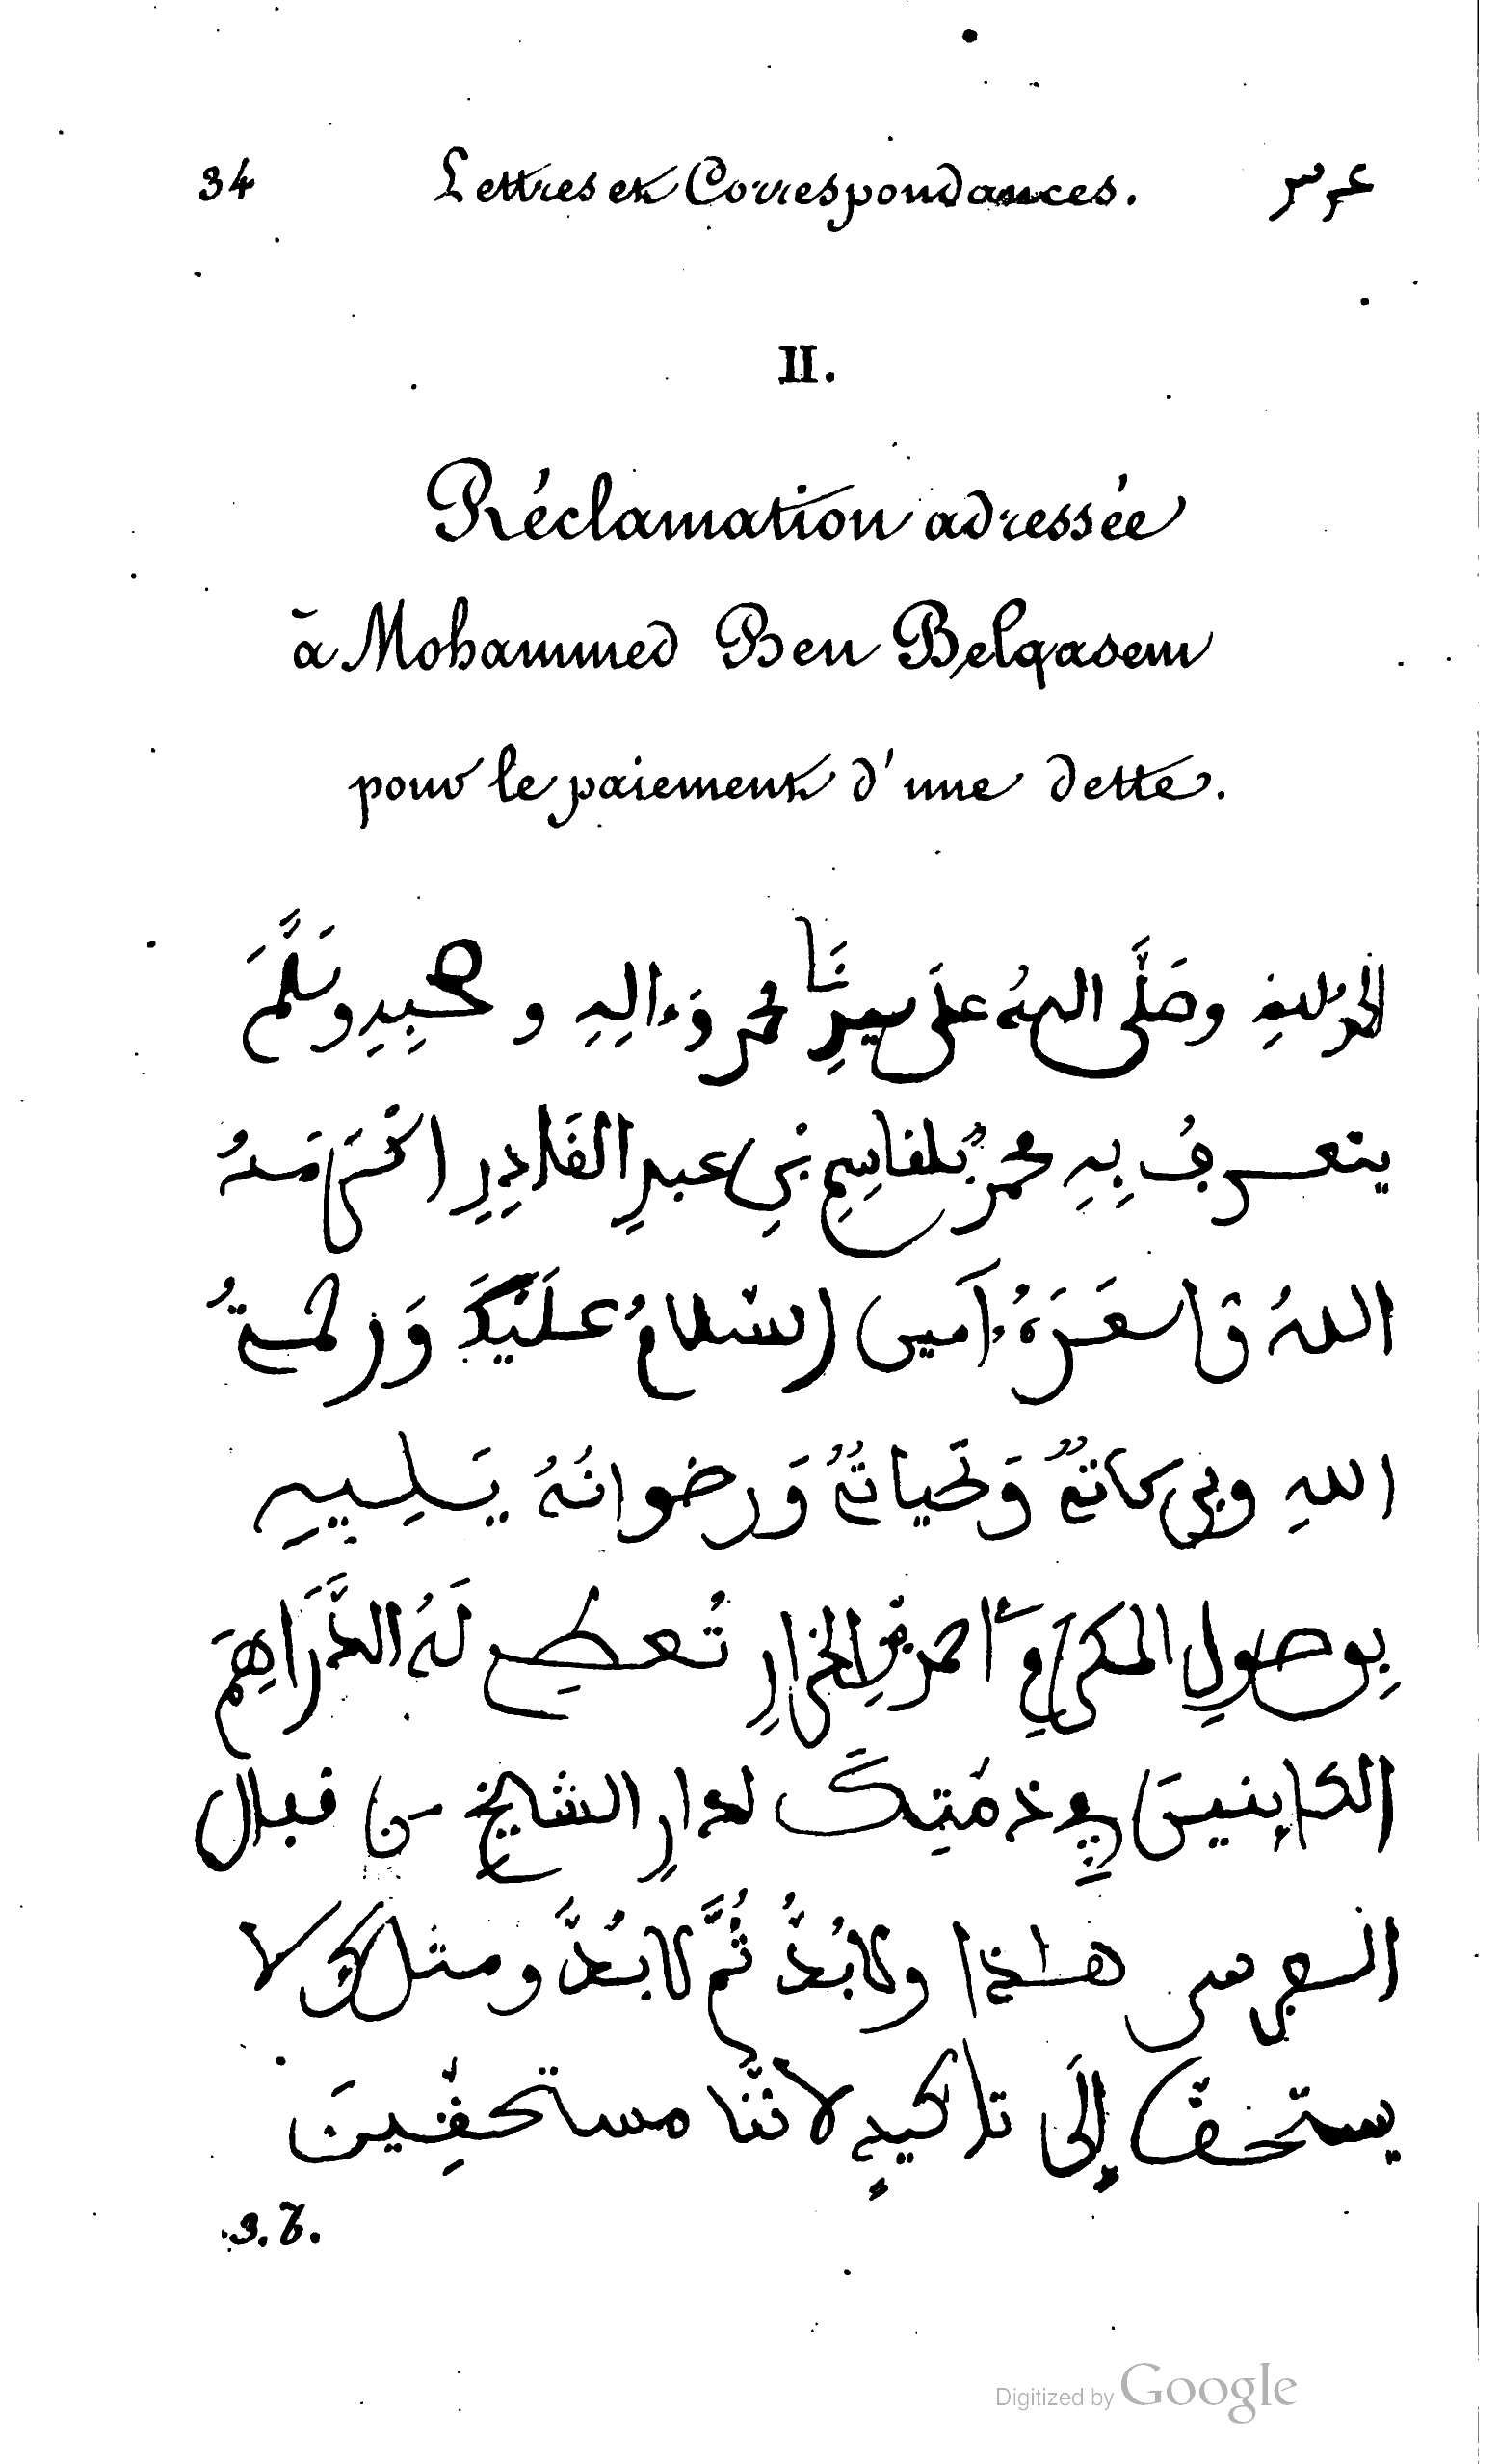 34 Lettres et Correspondances.
II.
Réclamation adressée
à Mohammed Ben Belqasem
pour le paiement d'une dette.
الحمد لله وصَلَّى اللهُ على سيدِنَا محمد وَءالِهِ و صحبِهِ وسَلَّمَ
يتعرف بِهِ محمد بُلفاسِمِ بْنِ عبدِ الفَادِرِ اكْرَمَهُ
اللهُ وَأسعَدَهُ ءآمين السّلامُ عَلَيْكَ وَرحمتُ
اللهِ وبركاتهُ وَتحياتهُ وَرضوانَهُ يَليهِ
بِوصولِ المكرم أحمد بن الخرارِ تُعطِي لَهُ الدَّرَاهِمَ
الكاينينَ في ذمَتِكَ لدارِ الشايخ من فبال
السرسى هاذا ولابُدَّ ثُمَّ لابُدَّ ومثلك لا
يستحق إِلَى تاكيدٍ لاننَا مستحفِينَ
S.V.
Digitized by Google